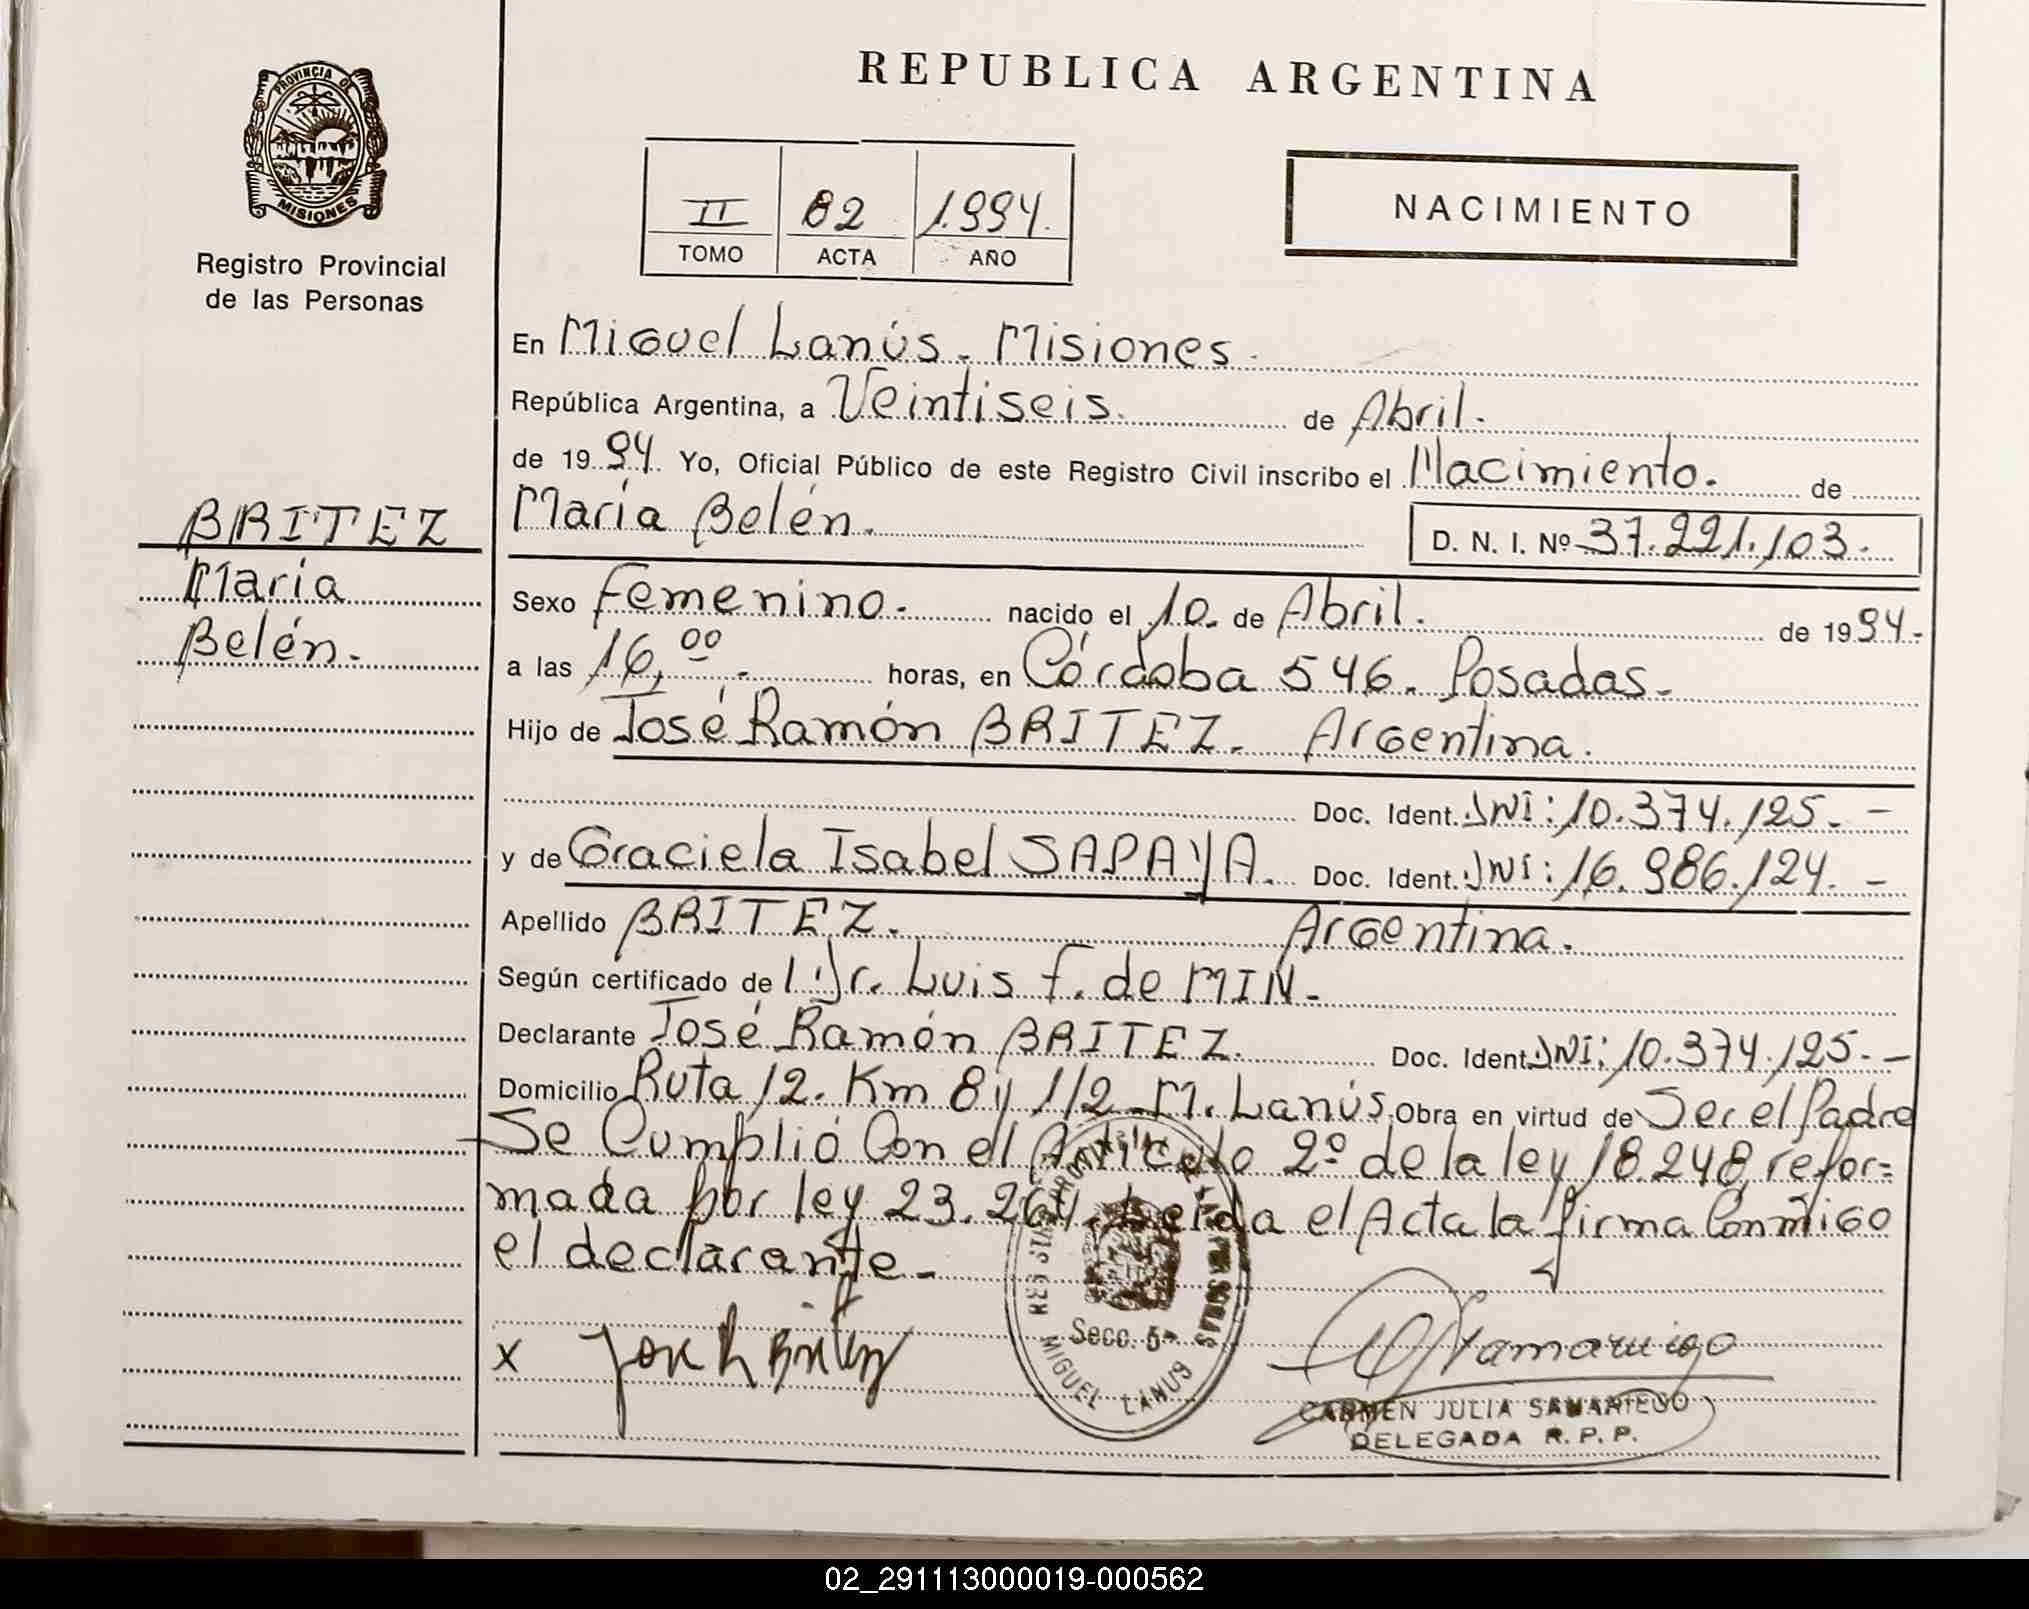 REPUBLICA ARGENTINA
PROVINCIA DE
MISIONES
Registro Provincial
de las Personas
II 82 1.994.
TOMO ACTA AÑO
NACIMIENTO
BRITEZ
María
Belén.
En Miguel Lanús. Misiones.
República Argentina, a Veintiseis. de Abril.
de 1994. Yo, Oficial Público de este Registro Civil inscribo el Nacimiento. de
María Belén. D. N. I. Nº 37.221.103.
Sexo Femenino. nacido el 10. de Abril. de 1994.
a las 16,00. horas, en Córdoba 546. Posadas.
Hijo de José Ramón BRITEZ. Argentina.
Doc. Ident. DNI: 10.374.125. -
y de Graciela Isabel SAPAYA. Doc. Ident. DNI: 16.986.124. -
Apellido BRITEZ. Argentina.
Según certificado de l Dr. Luis F. de MIN.
Declarante José Ramón BRITEZ. Doc. Ident. DNI: 10.374.125. -
Domicilio Ruta 12. Km 8 y 1/2 M. Lanús. Obra en virtud de Ser el Padre
Se Cumplió Con el Artículo 2º de la ley 18.248, refor=
mada por ley 23.264. Leída el Acta la firma Conmigo
el declarante.-
x José R Britez
Secc. 5ª
MIGUEL LANUS
CARMEN JULIA SAMANIEGO
DELEGADA R. P. P.
02_291113000019-000562